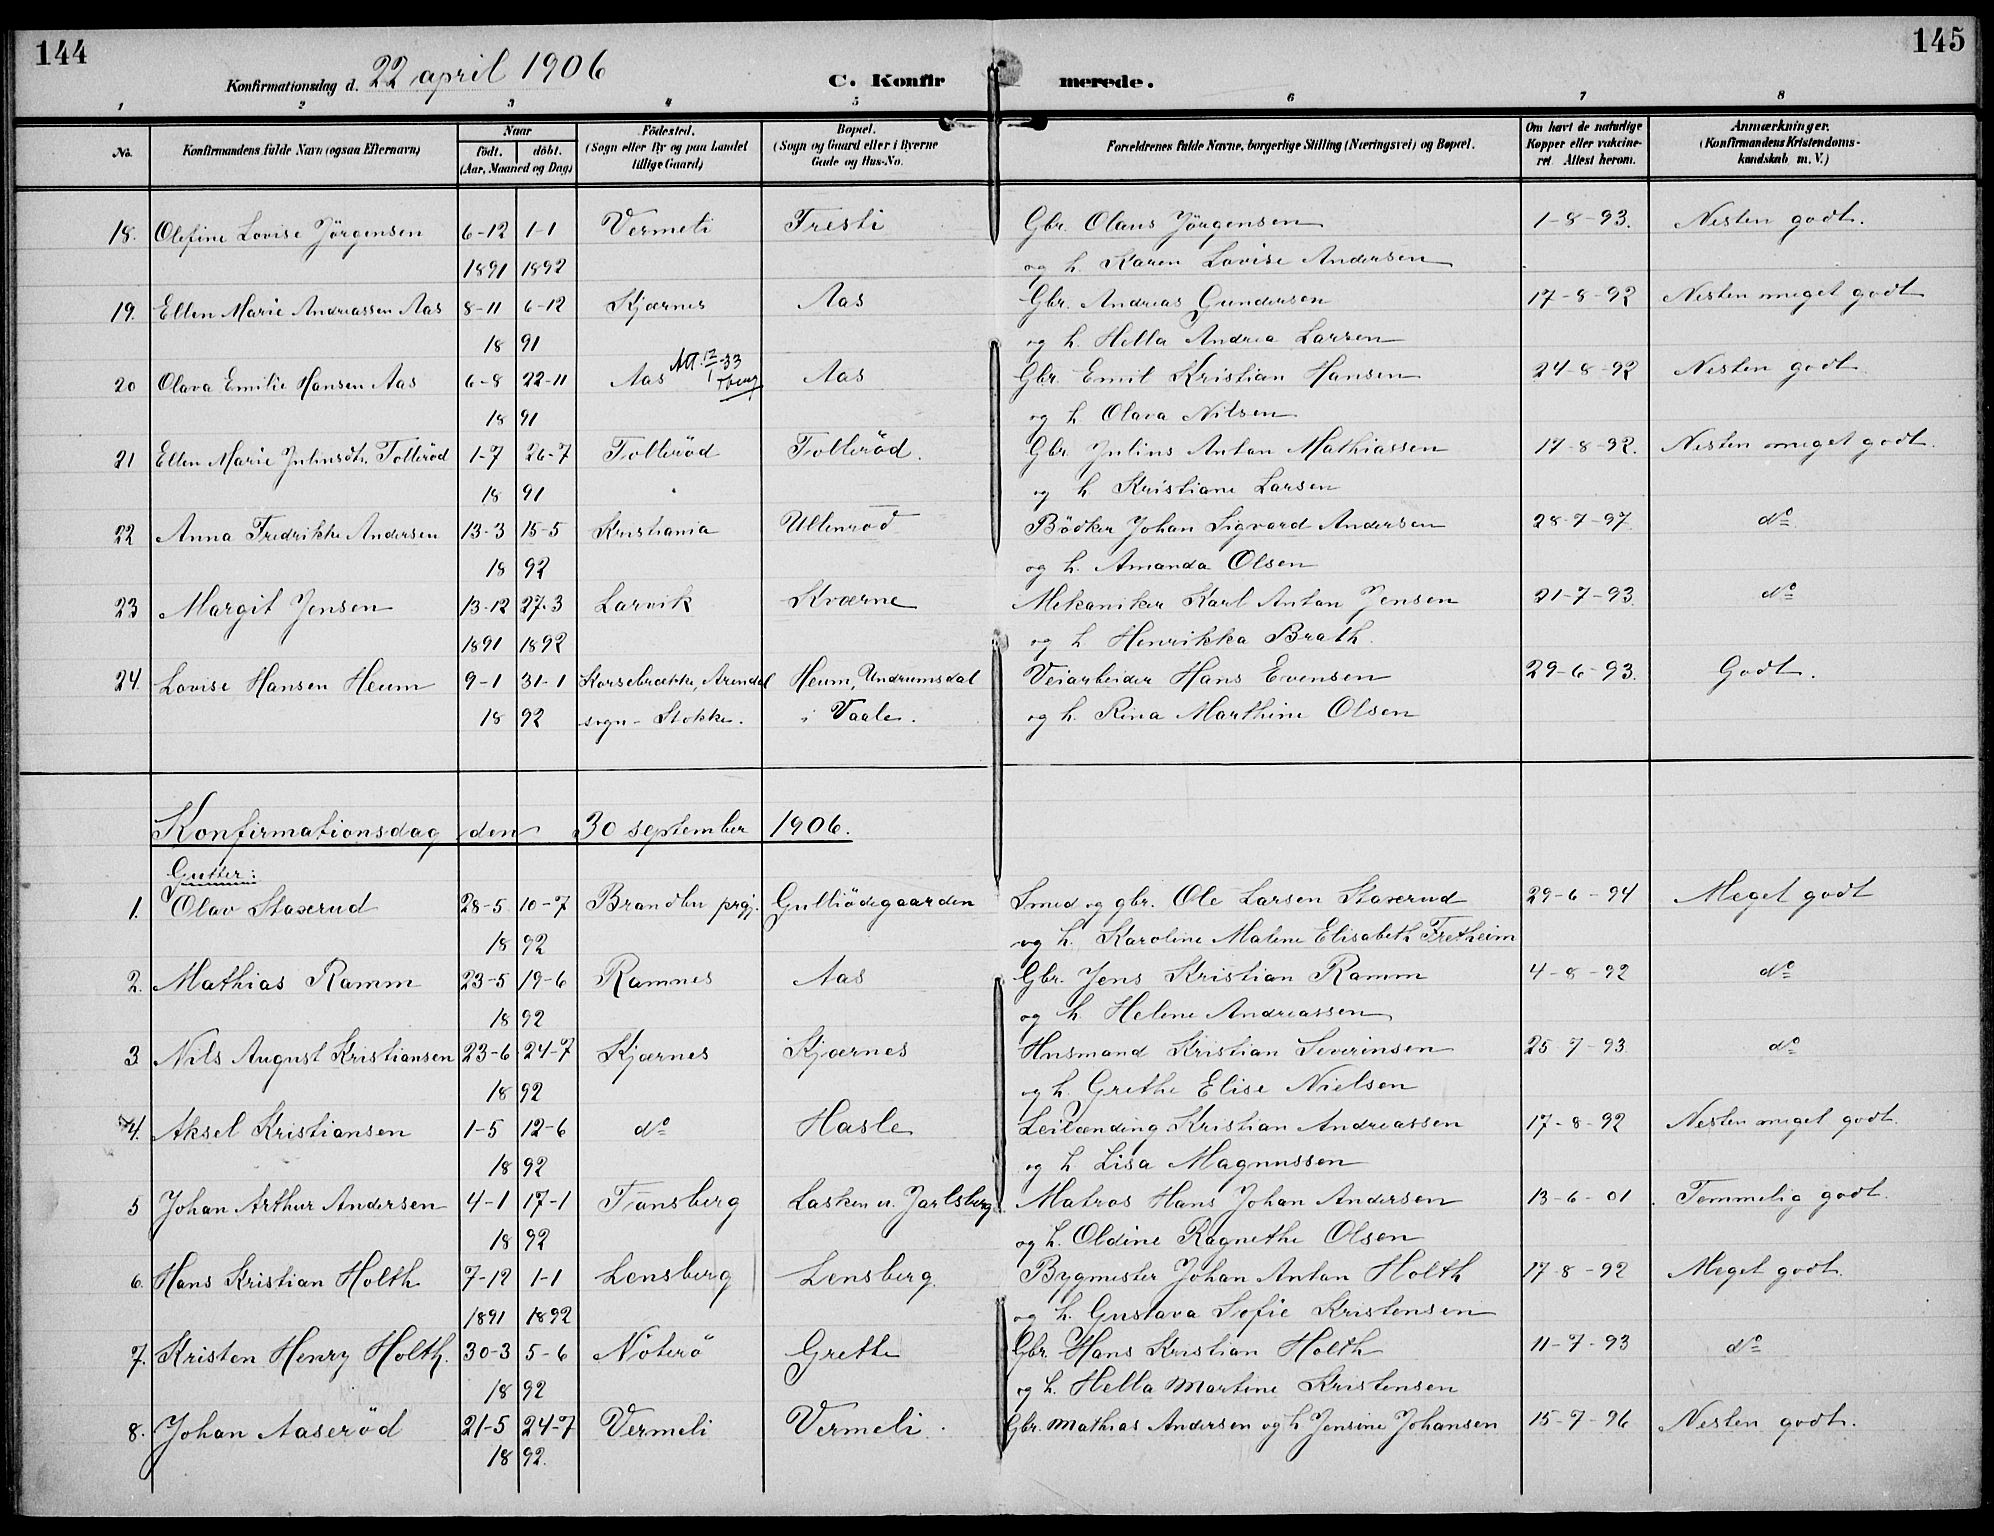 144
145
Konfirmationsdag d. 22 april 1906
C. Konfirmerede.
1 2 3 4 5 6 7 8
No. | Konfirmandens fulde Navn (ogsaa Efternavn) | Naar födt. döbt. (Aar, Maaned og Dag) | Födested. (Sogn eller By og paa Landet tillige Gaard) | Bopæl. (Sogn og Gaard eller i Byerne Gade og Hus-No. | Forældrenes fulde Navne, borgerlige Stilling (Næringsvei) og Bopæl. | Om havt de naturlige Kopper eller vakcineret. Attest herom. | Anmærkninger. (Konfirmandens Kristendomskundskab m. V.)
18. Olefine Lovise Jörgensen 6-12 1-1 Vermeli Tresti Gbr. Olaus Jörgensen 1-8-93. Nesten godt.
1891 1892 og h. Karen Lovise Andersen
19. Ellen Marie Andreassen Aas 8-11 6-12 Kjærnes Aas Gbr. Andreas Gundersen 17-8-92 Nesten meget godt
18 91 og h. Hella Andrea Larsen
20 Olava Emilie Hansen Aas 6-8 22-11 Aas Att. 12/1-33 Aas Gbr. Emil Kristian Hansen 24-8-92 Nesten godt
18 91 og h. Olava Nilsen
21 Ellen Marie Juliusdtr. Tolleröd 1-7 26-7 Tolleröd Tolleröd. Gbr. Julius Anton Mathiassen 17-8-92. Nesten meget godt.
18 91 og h Kristiane Larsen
22 Anna Fredrikke Andersen 13-3 15-5 Kristiania Ullenröd Bödker Johan Sigvard Andersen 28-7-97. do
18 92 og h. Amanda Olsen
23 Margit Jensen 13-12 27-3 Larvik Kværne Mekaniker Karl Anton Jensen 21-7-93. do
1891 1892 og h Henrikka Brath.
24. Lovise Hansen Heum 9-1 31-1 Korsebrække, Arendal Heum, Undrumsdal Veiarbeider Hans Evensen 29-6-93. Godt.
18 92 sogn - Stokke. i Vaale. og h. Rina Marthine Olsen
Konfirmationsdag den 30 september 1906.
Gutter:
1. Olav Staxerud 28-5 10-7 Brandbu prgj. Gulliödegaarden Smed og gbr. Ole Larsen Staxerud 29-6-94 Meget godt
18 92 og h. Karoline Malene Elisabeth Fretheim
2. Mathias Ramm 23-5 19-6 Ramnes Aas Gbr. Jens Kristian Ramm 4-8-92 do
18 92 og h. Helene Andreassen
3 Nils August Kristiansen 23-6 24-7 Kjærnes Kjærnes Husmand Kristian Severinsen 25-7-93 do
18 92 og h. Grethe Elise Nielsen
4. Aksel Kristiansen 1-5 12-6 do Hasle Leilænding Kristian Andreassen 17-8-92 Nesten meget godt.
18 92 og h. Lisa Magnussen
5 Johan Arthur Andersen 4-1 17-1 Tønsberg Lasken u. Jarlsberg Matros Hans Johan Andersen 13-6-01 Temmelig godt.
18 92 og h. Oldine Ragnethe Olsen
6. Hans Kristian Holth 7-12 1-1 Lensberg Lensberg. Bygmester Johan Anton Holth 17-8-92 Meget godt.
1891 1892 og h. Gustava Sofie Kristensen
7. Kristen Henry Holth. 30-3 5-6 Nöterö Grette Gbr. Hans Kristian Holth 11-7-93 do
18 92 og h. Hella Martine Kristensen
8. Johan Aaseröd 21-5 24-7 Vermeli Vermeli. Gbr. Mathias Andersen og h Jensine Johansen 15-7-96 Nesten godt.
18 92.